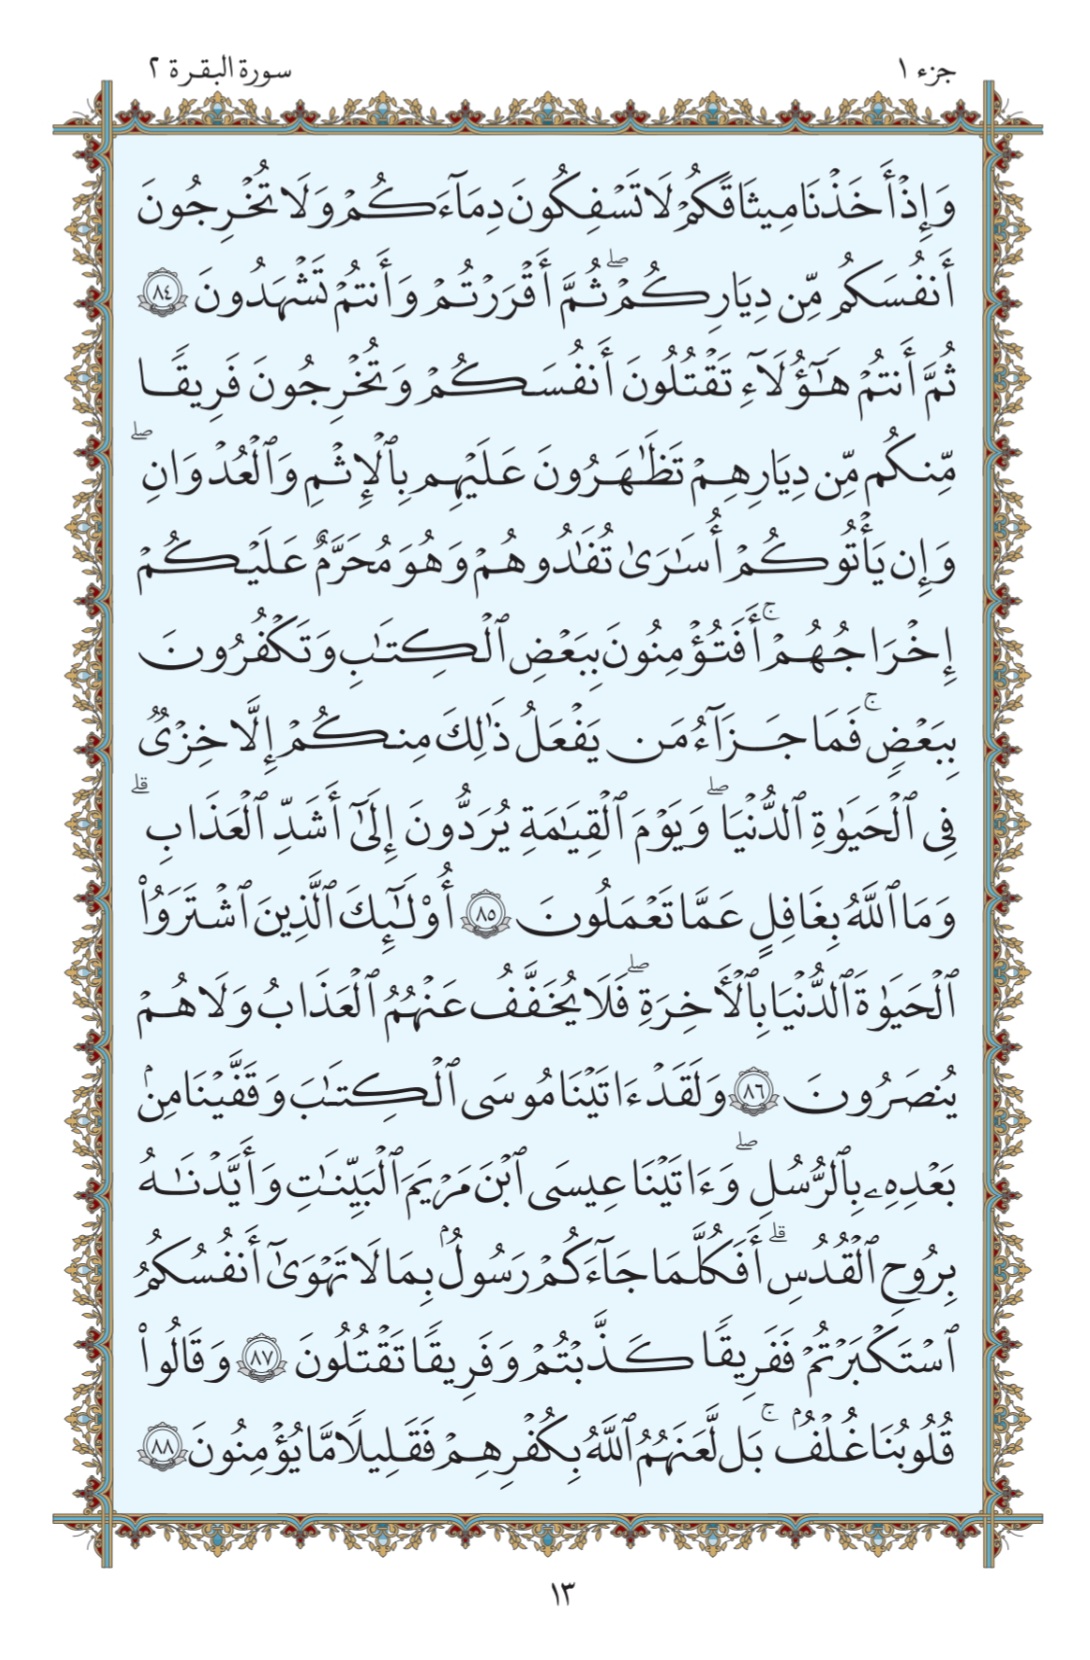 جزء ١
سورة البقرة ٢
وَإِذْ أَخَذْنَا مِيثَاقَكُمْ لَا تَسْفِكُونَ دِمَآءَكُمْ وَلَا تُخْرِجُونَ
أَنفُسَكُم مِّن دِيَارِكُمْ ۖ ثُمَّ أَقْرَرْتُمْ وَأَنتُمْ تَشْهَدُونَ ٨٤
ثُمَّ أَنتُمْ هَٰٓؤُلَآءِ تَقْتُلُونَ أَنفُسَكُمْ وَتُخْرِجُونَ فَرِيقًا
مِّنكُم مِّن دِيَارِهِمْ تَظَٰهَرُونَ عَلَيْهِم بِٱلْإِثْمِ وَٱلْعُدْوَانِ ۖ
وَإِن يَأْتُوكُمْ أُسَٰرَىٰ تُفَٰدُوهُمْ وَهُوَ مُحَرَّمٌ عَلَيْكُمْ
إِخْرَاجُهُمْ ۚ أَفَتُؤْمِنُونَ بِبَعْضِ ٱلْكِتَٰبِ وَتَكْفُرُونَ
بِبَعْضٍ ۚ فَمَا جَزَآءُ مَن يَفْعَلُ ذَٰلِكَ مِنكُمْ إِلَّا خِزْىٌ
فِى ٱلْحَيَوٰةِ ٱلدُّنْيَا ۖ وَيَوْمَ ٱلْقِيَٰمَةِ يُرَدُّونَ إِلَىٰٓ أَشَدِّ ٱلْعَذَابِ ۗ
وَمَا ٱللَّهُ بِغَافِلٍ عَمَّا تَعْمَلُونَ ٨٥ أُو۟لَٰٓئِكَ ٱلَّذِينَ ٱشْتَرَوُا۟
ٱلْحَيَوٰةَ ٱلدُّنْيَا بِٱلْأَخِرَةِ ۖ فَلَا يُخَفَّفُ عَنْهُمُ ٱلْعَذَابُ وَلَا هُمْ
يُنصَرُونَ ٨٦ وَلَقَدْ ءَاتَيْنَا مُوسَى ٱلْكِتَٰبَ وَقَفَّيْنَا مِنۢ
بَعْدِهِۦ بِٱلرُّسُلِ ۖ وَءَاتَيْنَا عِيسَى ٱبْنَ مَرْيَمَ ٱلْبَيِّنَٰتِ وَأَيَّدْنَٰهُ
بِرُوحِ ٱلْقُدُسِ ۗ أَفَكُلَّمَا جَآءَكُمْ رَسُولٌۢ بِمَا لَا تَهْوَىٰٓ أَنفُسُكُمُ
ٱسْتَكْبَرْتُمْ فَفَرِيقًا كَذَّبْتُمْ وَفَرِيقًا تَقْتُلُونَ ٨٧ وَقَالُوا۟
قُلُوبُنَا غُلْفٌۢ ۚ بَل لَّعَنَهُمُ ٱللَّهُ بِكُفْرِهِمْ فَقَلِيلًا مَّا يُؤْمِنُونَ ٨٨
١٣